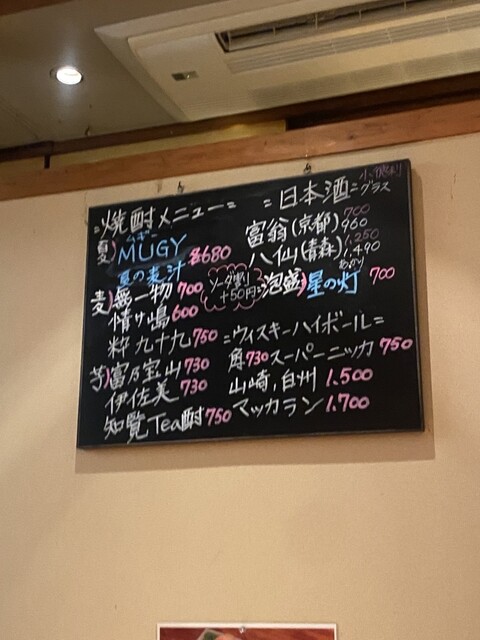 =焼酎メニュー=
夏)MUGY 680
ムギー
夏の麦汁
麦)無一物 700
情け嶋 600
粋 九十九 750
芋)富乃宝山 730
伊佐美 730
知覧Tea酎 750
ソーダ割
+50円
=日本酒=
グラス
富翁(京都) 700
960
八仙(青森) 1,250
1,490
あわもり
=泡盛=星の灯 700
=ウィスキーハイボール=
角730 スーパーニッカ 750
山崎,白州 1,500
マッカラン 1,700